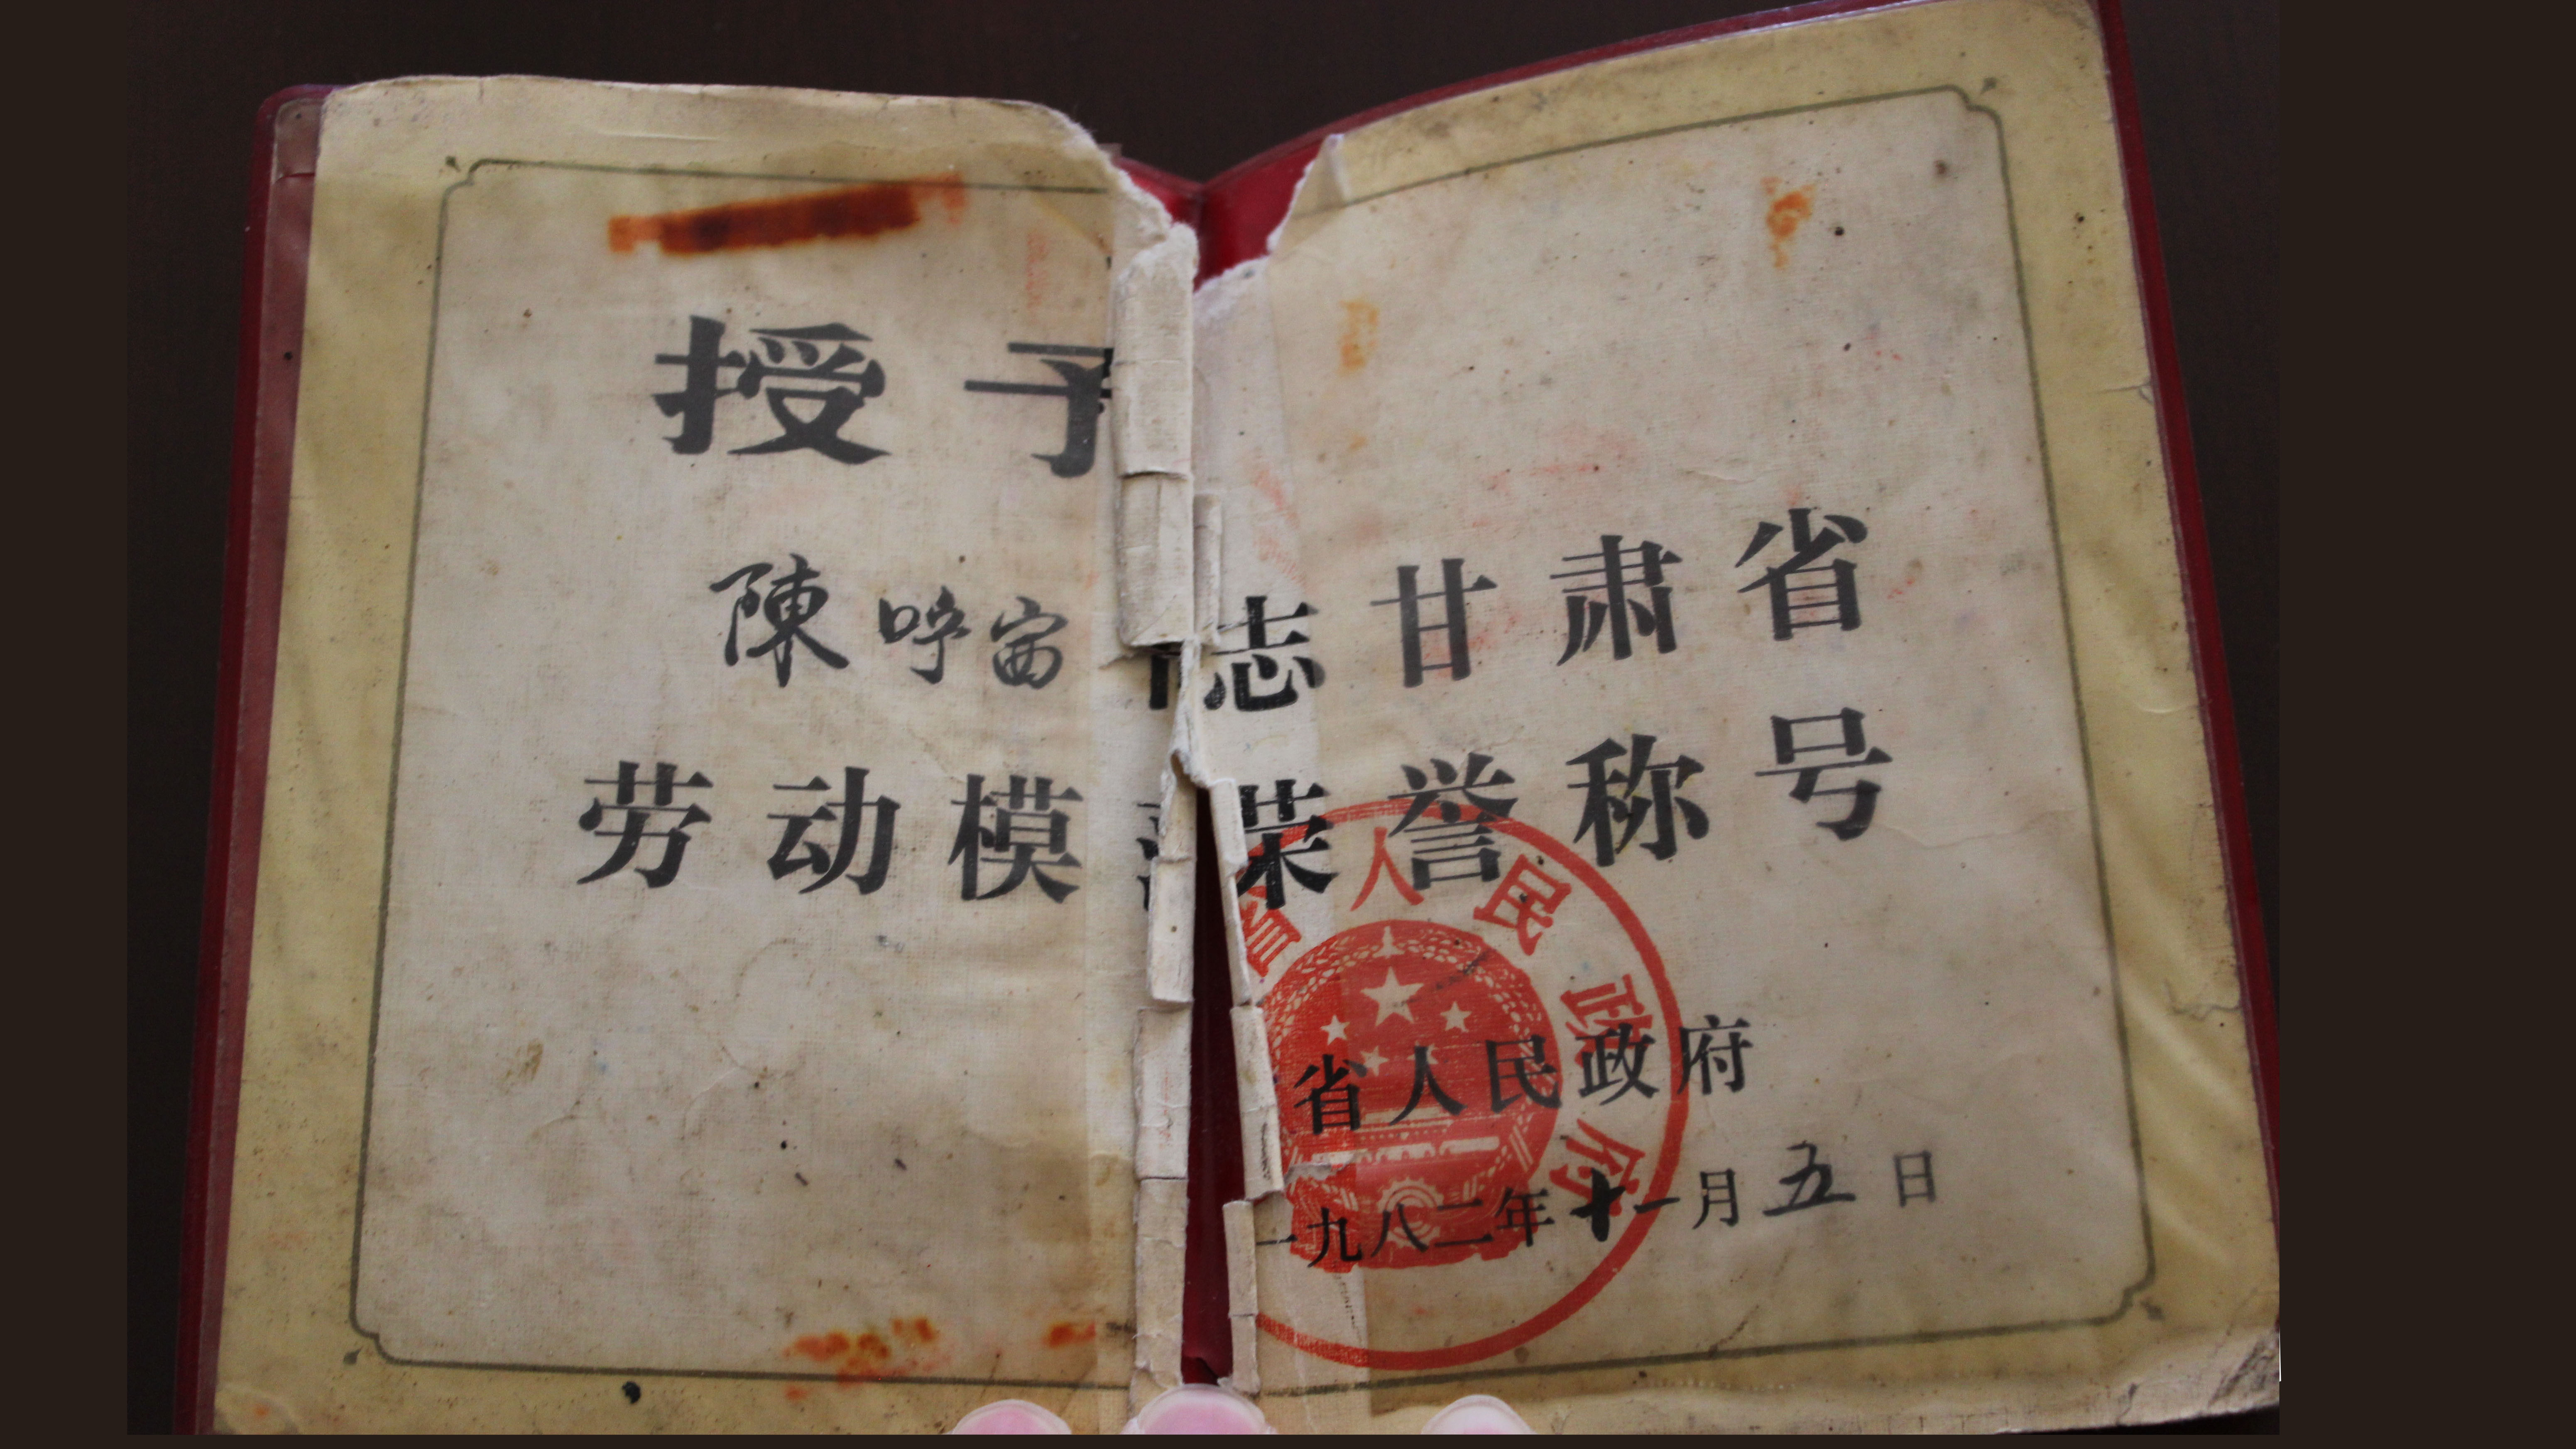 授予
陳呼畜同志甘肃省
劳动模范荣誉称号
省人民政府
省人民政府
一九八二年十一月五日